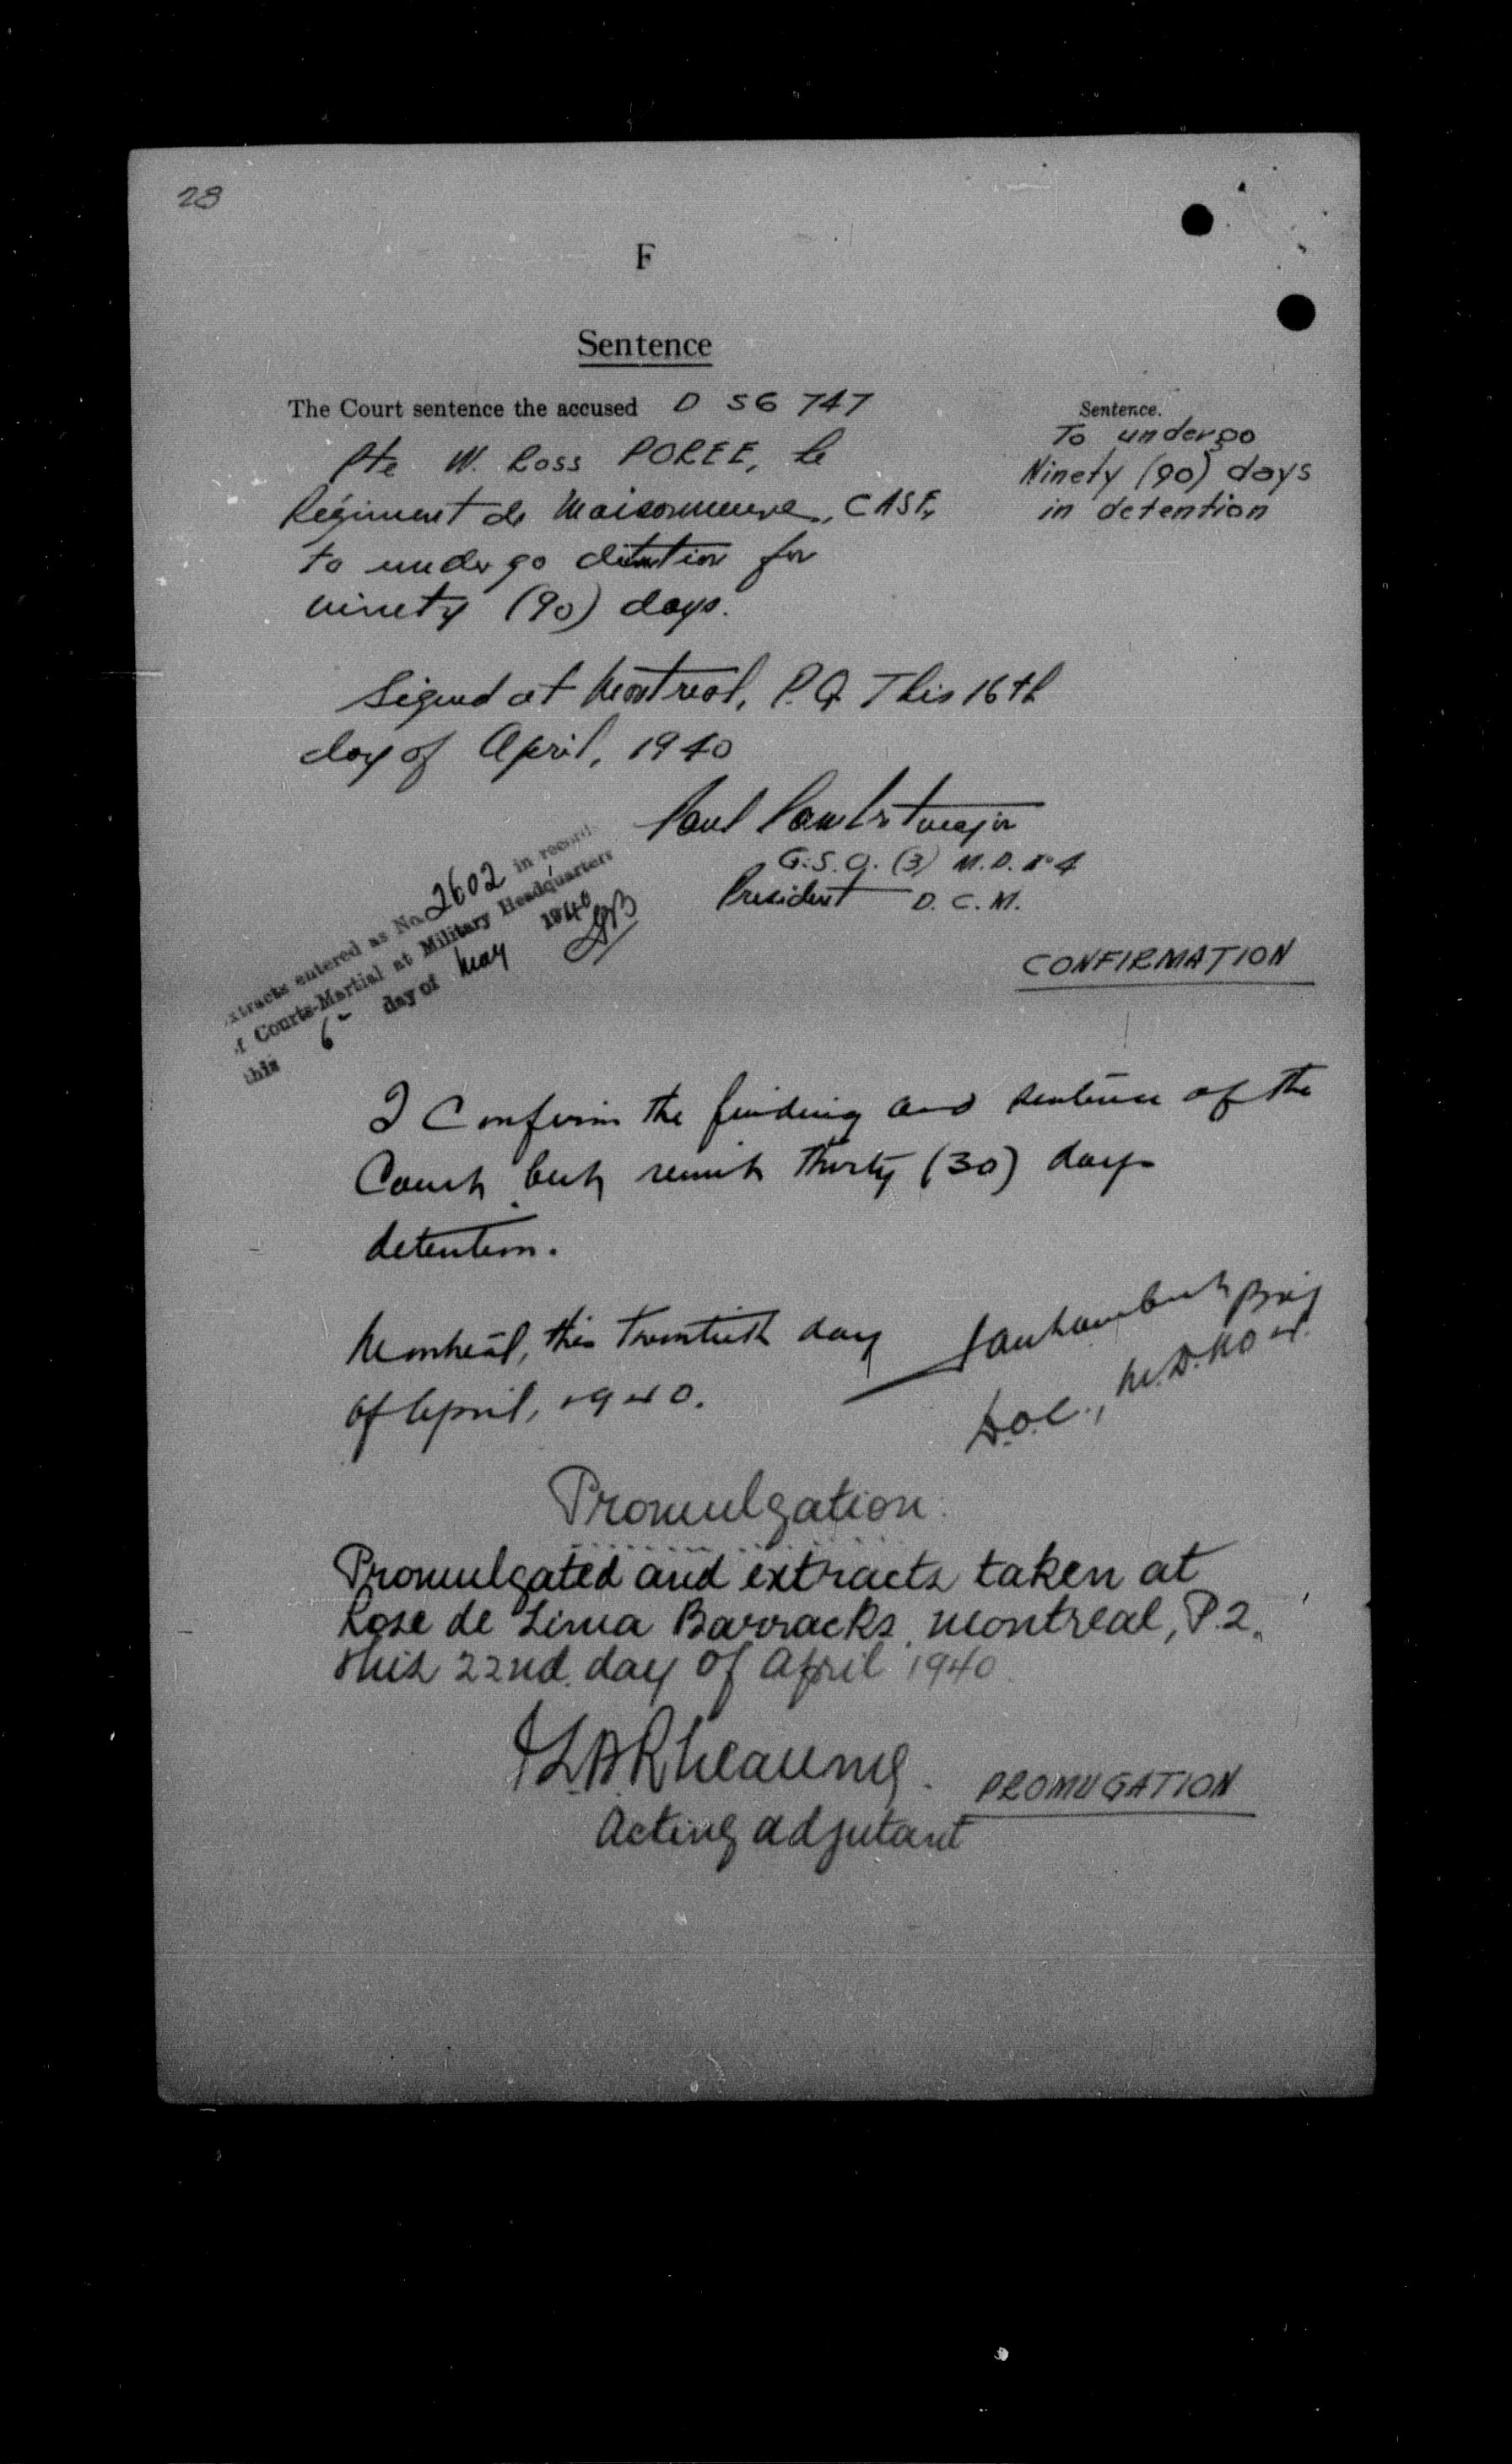 28
F
Sentence
The Court sentence the accused D 56 747
Pte W. Ross POREE, Le
Régiment de Maisonneuve, CASF,
to undergo detention for
ninety (90) days.
Sentence.
To undergo
Ninety (90) days
in detention
Signed at Montreal, P.Q. This 16th
day of April, 1940
Paul major
G.S.O. (3) M.D. No 4
President D.C.M.
xtracts entered as No. 2602 in record
f Courts-Martial at Military Headquarters
this 6 day of May 1940
CONFIRMATION
I Confirm the finding and sentence of the
Court but remit thirty (30) days
detention.
Montreal, this twentieth day
of April, 1940.
Brig
D.O.C., M.D. No 4.
Promulgation.
Promulgated and extracts taken at
Rose de Lima Barracks, Montreal, P.Q.
this 22nd. day of April 1940.
Rheaume
Acting adjutant
PROMUGATION